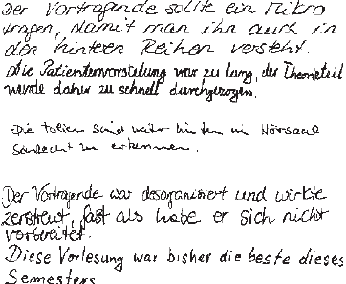 Der Vortragende sollte ein Mikro
tragen, damit man ihn auch in
den hinteren Reihen versteht.
Die Patientenvorstellung war zu lang, der Theorieteil
wurde daher zu schnell durchgezogen.
Die Folien sind weiter hinten im Hörsaal
schlecht zu erkennen.
Der Vortragende war desorganisiert und wirkte
zerstreut, fast als habe er sich nicht
vorbereitet.
Diese Vorlesung war bisher die beste dieses
Semesters